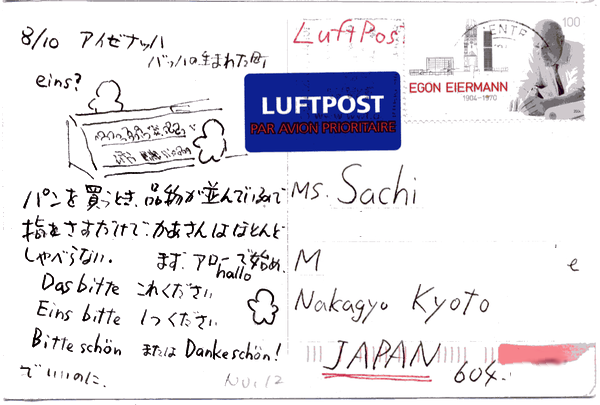 8/10 アイゼナッハ
バッハの生まれた町
eins?
パンを買うとき、品物が並んでいるので
指をさすだけで、かあさんはほとんど
しゃべらない。 まず、アローで始め、
hallo
Das bitte これください
Eins bitte 1つください
Bitte schön または Danke schön!
でいいのに。
No.12
Luftpost
LUFTPOST
PAR AVION PRIORITAIRE
100
EGON EIERMANN
1904-1970
Ms. Sachi
M e
Nakagyo Kyoto
JAPAN 604-